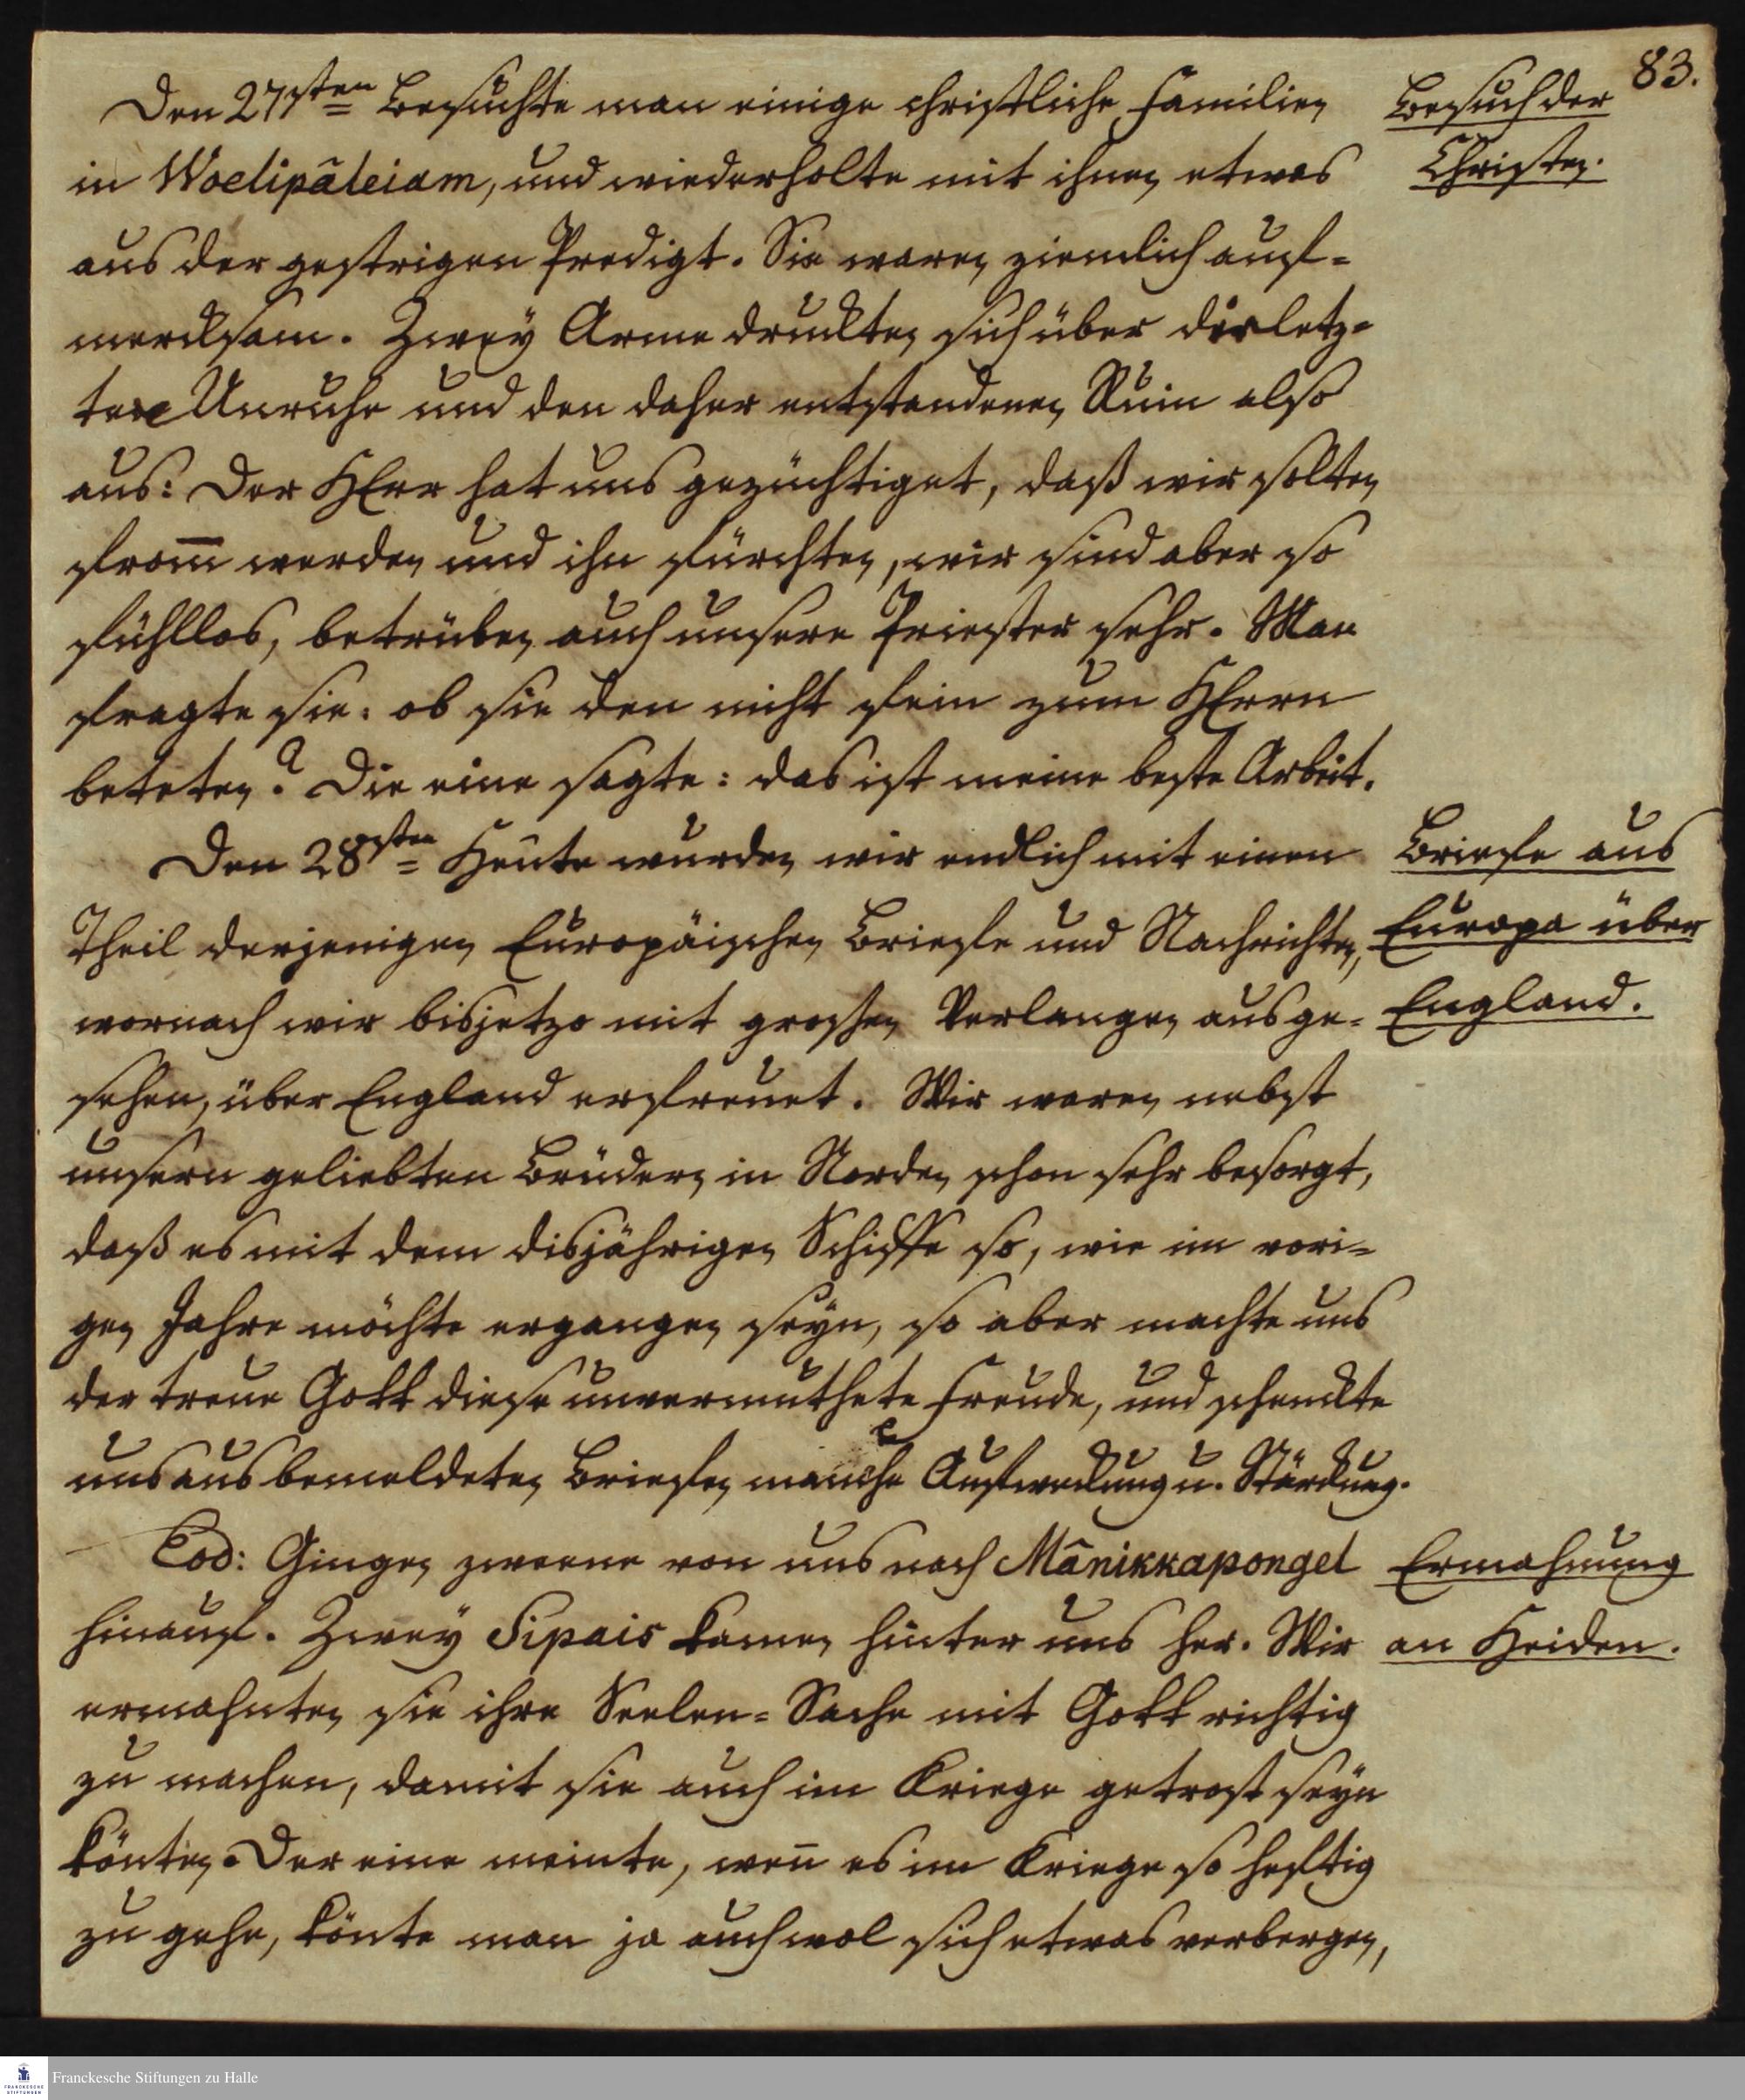 83.
Den 27sten Besuchte man einige christliche Familien
in Woelipâleiam, und wiederholte mit ihnen etwas
aus der gestrigen Predigt. Sie waren ziemlich auf=
mercksam. Zwey Arme druckten sich über die letz=
tere Unruhe und den daher entstandenen Ruin also
aus: Der HErr hat uns gezüchtiget, daß wir solten
from̅ werden und ihn fürchten, wir sind aber so
fühllos, betrüben auch unsere Priester sehr. Man
fragte sie: ob sie den nicht fein zum HErrn
beteten? Die eine sagte: das ist meine beste Arbeit.
Besuch der
Christen.
Den 28sten Heute wurden wir endlich mit einen
Theil derjenigen Europäischen Briefe und Nachrichten,
wornach wir bisjetzo mit grossen Verlangen ausge=
sehen, über England erfreuet. Wir waren nebst
unsern geliebten Brüdern in Norden schon sehr besorgt,
daß es mit dem disjährigen Schiffe so, wie im vori=
gen Jahre möchte ergangen seyn, so aber machte uns
der treue Gott diese unvermuthete Freude, und schenckte
uns aus bemeldeten Briefen manche Aufweckung u. Stärckung.
Briefe aus
Europa über
England.
Eod: Gingen zweene von uns nach Mânikkapongel
hinauf. Zwey Sipais kamen hinter uns her. Wir
ermahnten sie ihre Seelen=Sache mit Gott richtig
zu machen, damit sie auch im Kriege getrost seyn
könten. Der eine meinte, wen̅ es im Kriege so heftig
zu gehe, könte man ja auch wol sich etwas verbergen,
Ermahnung
an Heiden.
Franckesche Stiftungen zu Halle
FRANCKESCHE
STIFTUNGEN